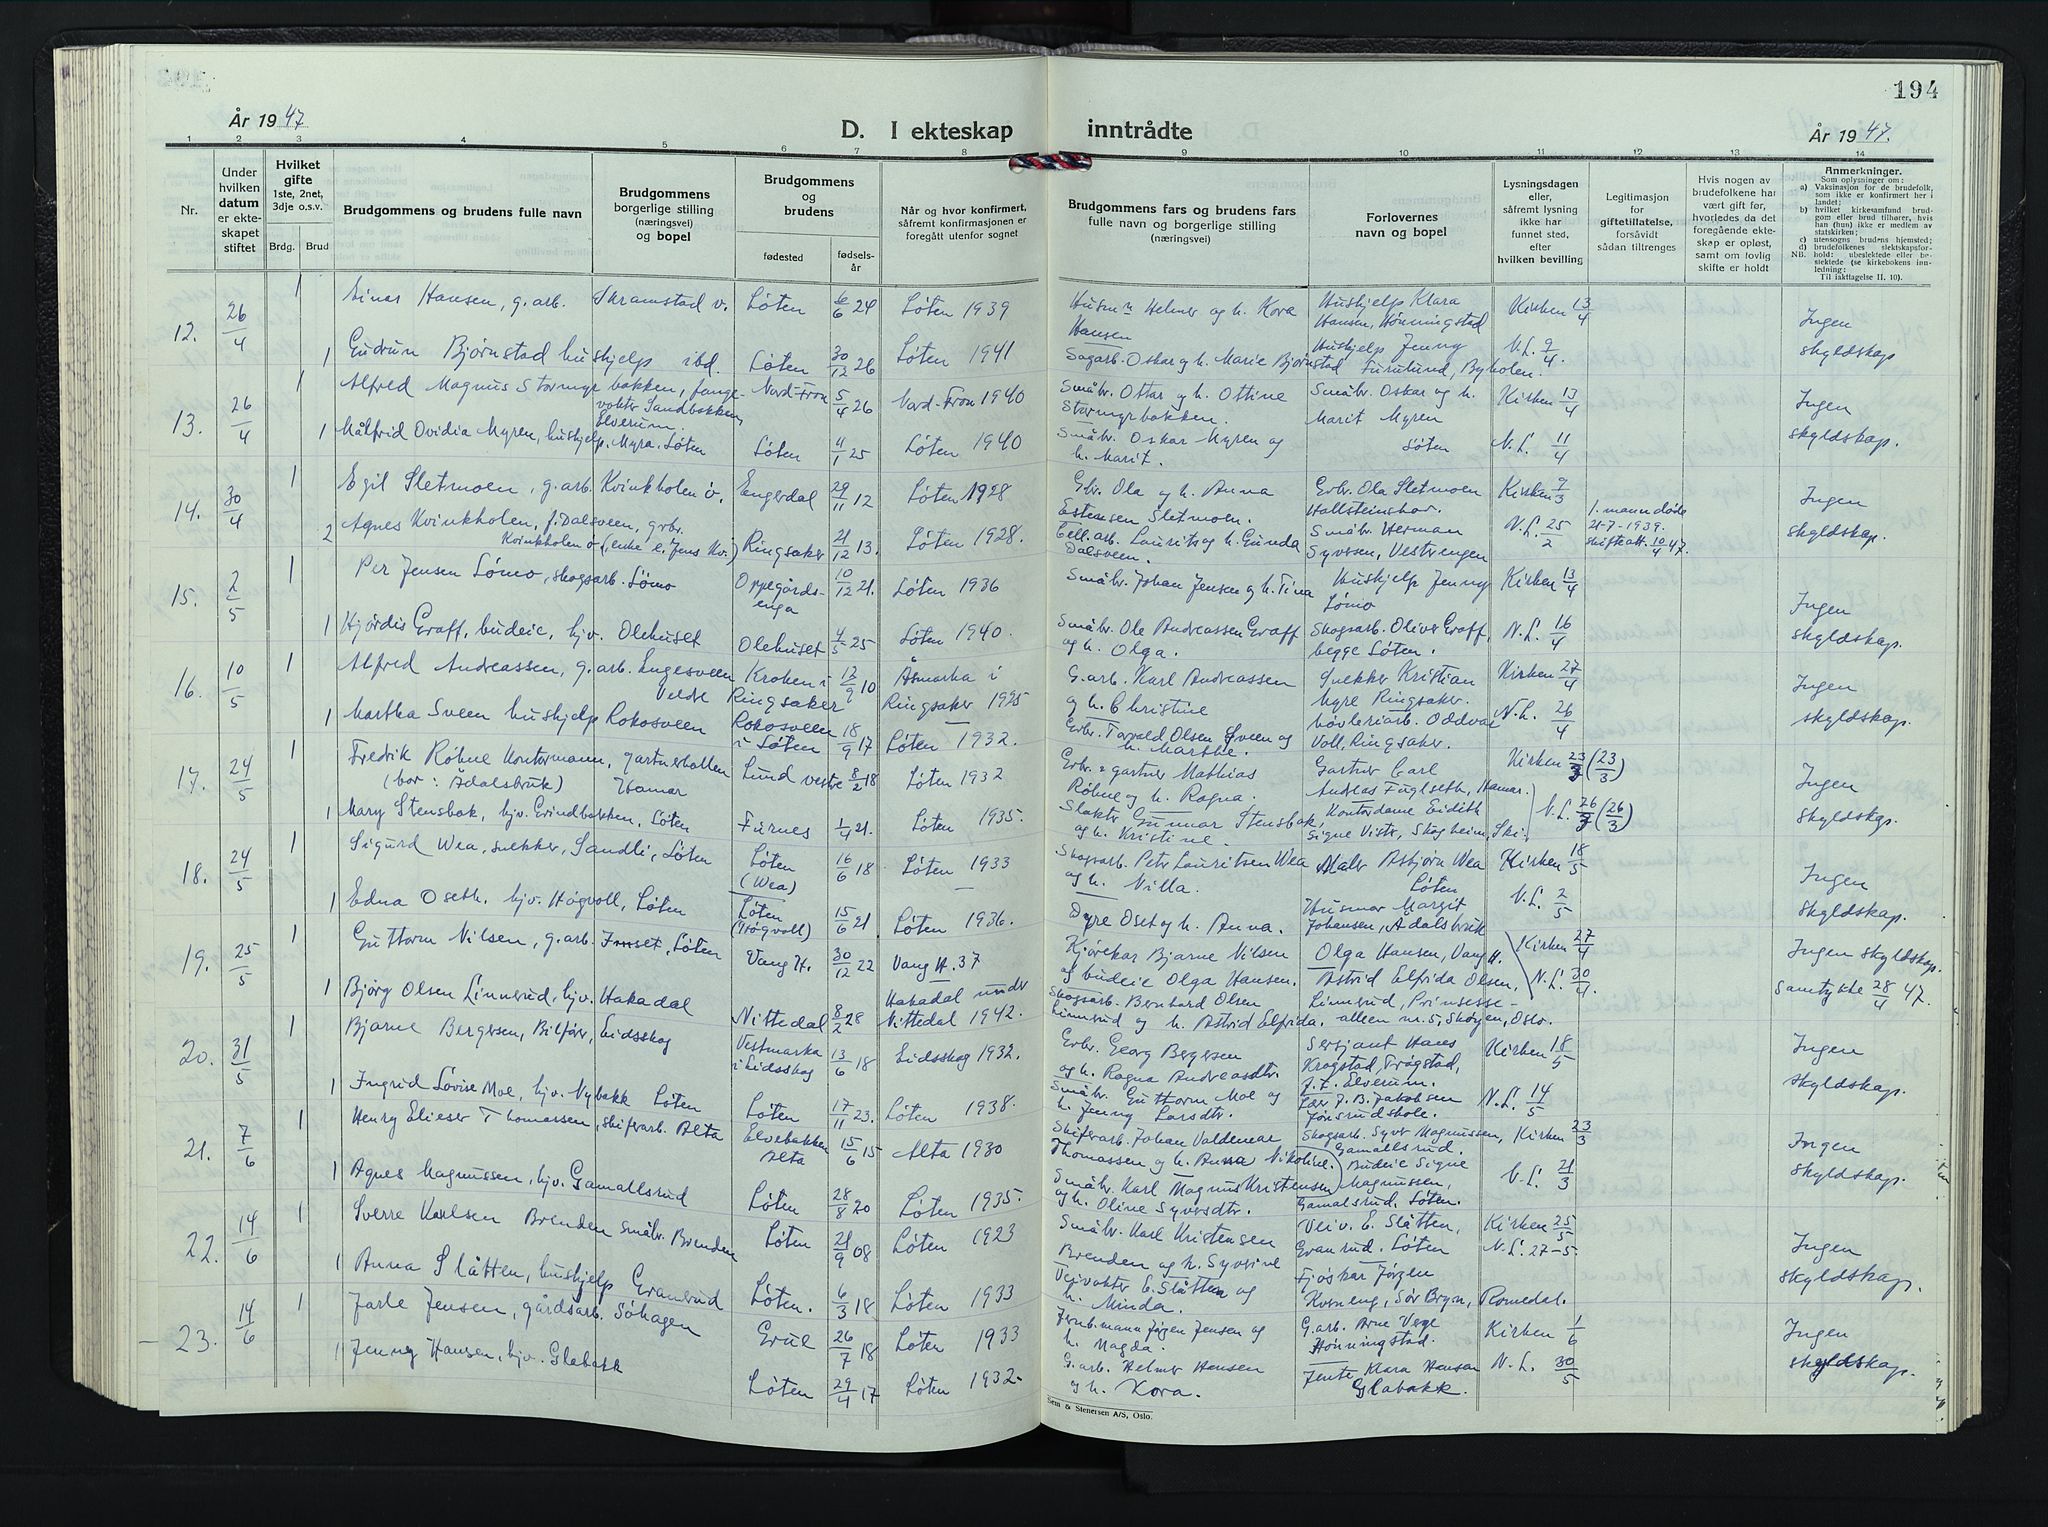 194
År 1947
D. I ekteskap inntrådte
År 1947.
1 2 3 4 5 6 7 8 9 10 11 12 13 14
Nr.
Under hvilken datum er ekteskapet stiftet
Hvilket gifte 1ste, 2net, 3dje o.s.v.
Brdg. Brud
Brudgommens og brudens fulle navn
Brudgommens borgerlige stilling (næringsvei) og bopel
Brudgommens og brudens
fødested
fødselsår
Når og hvor konfirmert, såfremt konfirmasjonen er foregått utenfor sognet
Brudgommens fars og brudens fars fulle navn og borgerlige stilling (næringsvei)
Forlovernes navn og bopel
Lysningsdagen eller, såfremt lysning ikke har funnet sted, efter hvilken bevilling
Legitimasjon for giftetillatelse, forsåvidt sådan tiltrenges
Hvis nogen av brudefolkene har vært gift før, hvorledes da det foregående ekteskap er opløst, samt om lovlig skifte er holdt
Anmerkninger.
Som oplysninger om:
a) Vaksinasjon for de brudefolk, som ikke er konfirmert her i landet;
b) hvilket kirkesamfund brudgom eller brud tilhører, hvis han (hun) ikke er medlem av statskirken;
c) utensogns brudens hjemsted;
d) brudefolkenes slektskapsforhold: ubeslektede eller beslektede (se kirkebokens innledning:
NB. Til iakttagelse II. 10).
12. 26/4 1 Einar Hansen, g.arb. Skramstad v. Løten 6/6 24 Løten 1939 Husm. Helmer og h. Kora Hansen Hushjelp Klara Hansen, Hønningstad Kirken 13/4 Ingen skyldskap
1 Gudrun Bjørnstad hushjelp ibd. Løten 30/12 26 Løten 1941 Sagarb. Oskar og h. Marie Bjørnstad Hushjelp Jenny Furulund, Byholen. N.L. 9/4.
13. 26/4 1 Alfred Magnus Stormyrbakken, fangevokter Sandbakken, Elverum. Nord-Fron 5/4 26 Nord-Fron 1940 Småbr. Ottar og h. Ottine Stormyrbakken. Småbr. Oskar og h. Marit Myren Løten Kirken 13/4 Ingen skyldskap.
1 Målfrid Ovidia Myren, hushjelp, Myra, Løten Løten 4/1 25 Løten 1940 Småbr. Oskar Myren og h. Marit. N.L. 11/4
14. 30/4 1 Egil Sletmoen, g.arb. Kvinkholen ö. Engerdal 29/11 12 Løten 1928 Gbr. Ola og h. Anna Estensen Sletmoen. Gbr. Ola Sletmoen Hallsteinshov. Kirken 9/3 Ingen skyldskap.
2 Agnes Kvinkholen, f. Dalsveen, grbr. Kvinkholen ö (enke e. Jens Kv.) Ringsaker 21/12 13. Løten 1928. Tell.arb. Laurits og h. Gunda Dalsveen. Småbr. Herman Syversen, Vestrengen N.L. 25/2 1. mann døde 21-7-1939. skifteatt. 10/4 47.
15. 2/5 1 Per Jensen Lømo, skogsarb. Lømo Oppegårdsenga 10/12 21. Løten 1936 Småbr. Johan Jensen og h. Tina Hushjelp Jenny Lømo Kirken 13/4 Ingen skyldskap.
1 Hjørdis Graff, budeie, hjv. Olehuset Olehuset 4/5 25 Løten 1940. Småbr. Ole Andreassen Graff og h. Olga. Skogsarb. Oliver Graff, begge Løten. N.L. 16/4
16. 10/5 1 Alfred Andreassen, g.arb. Engesveen Veldre Kroken i Ringsaker 13/9 10 Åsmarka i Ringsaker 1925 G.arb. Karl Andreassen og h. Christine Snekker Kristian Myre Ringsaker. Kirken 27/4 Ingen skyldskap.
1 Martha Sveen hushjelp Rokosveen Rokosveen i Løten 18/9 17 Løten 1932. Gbr. Torvald Olsen Sveen og h. Marthe. Høvleriarb. Oddvar Voll, Ringsaker. N.L. 26/4
17. 24/5 1 Fredrik Røhne Kontormann, gartnerhallen (bor: Ådalsbruk) Hamar Lund vestre 8/2 18 Løten 1932 Gbr. & gartner Mathias Røhne og h. Ragna. Gartner Carl Andreas Fuglseth, Hamar. Kirken 23/3 (23/3) Ingen skyldskap.
1 Mary Stensbak, hjv. Grindbakken, Løten Furnes 1/4 21. Løten 1935. Slakter Gunnar Stensbak, og h. Kristine. Kontordame Eidith Signe Vister, Skogheim, Ski. N.L. 26/3 (26/3)
18. 24/5 1 Sigurd Wea, snekker, Sandli, Løten Løten (Wea) 16/6 18 Løten 1933 Skogsarb. Peter Lauritsen Wea og h. Nilla. Maler Asbjørn Wea Løten Kirken 18/5 Ingen skyldskap.
1 Edna Oseth, hjv. Høgvoll, Løten Løten (Høgvoll) 15/6 21. Løten 1936. Dyre Oset og h. Anna. Husmor Margit Johansen, Ådalsbruk N.L. 2/5
19. 25/5 1 Guttorm Nilsen, g.arb. Imset, Løten Vang H. 30/12 22 Vang H. 37 Kjørekar Bjarne Nilsen og budeie Olga Hansen. Olga Hansen, Vang H. Kirken 27/4 Ingen skyldskap.
1 Bjørg Olsen Linnerud, hjv. Hakadal Nittedal 8/2 28 Hakadal under Nittedal 1942. Skogsarb. Bernhard Olsen Linnerud og h. Astrid Elfrida. Astrid Elfrida Olsen, Linnerud, Prinsessealleen nr. 5, Skøyen, Oslo. N.L. 30/4. Samtykke 28/4 47.
20. 31/5 1 Bjarne Bergersen, Bilfører, Eidsskog Vestmarka i Eidsskog 13/6 18 Eidsskog 1932. Gbr. Georg Bergersen og h. Ragna Andreasdtr. Sersjant Hans Krogstad, Trøgstad, f.t. Elverum. Kirken 18/5 Ingen skyldskap.
1 Ingrid Lovise Moe, hjv. Nybakk Løten Løten 17/11 23. Løten 1938. Småbr. Guttorm Moe og h. Jenny Larsdtr. Lær. J. B. Jakobsen Jønsrudskole. N.L. 14/5
21. 7/6 1 Henry Elieser Thomassen, skiferarb. Alta Elvebakken Alta 15/6 15 Alta 1930 Skiferarb. Johan Valdemar Thomassen og h. Anna Nikoline. Skogsarb. Syver Magnussen, Gamallsrud. Kirken 23/3 Ingen skyldskap.
1 Agnes Magnussen, hjv. Gamallsrud Løten 28/8 20 Løten 1935. Småbr. Karl Magnus Kristensen og h. Oline Syversdtr. Budeie Signe Magnussen, Gamalsrud, Løten. N.L. 21/3
22. 14/6 1 Sverre Karlsen Brenden småbr. Brenden Løten 21/9 08 Løten 1923 Småbr. Karl Kristensen Brenden og h. Syverine Veiv. E. Slåtten, Granrud, Løten Kirken 25/5 Ingen skyldskap.
1 Anna Slåtten, hushjelp Granerud Løten. 6/3 18 Løten 1933 Veivokter E. Slåtten og h. Minda. Fjøskar Jørgen Kverneng, Sør Bryn, Romedal. N.L. 27-5.
23. 14/6 1 Jarle Jensen, gårdsarb. Søhagen Grue 26/7 18 Løten 1933 Jernb.mann Jørgen Jensen og h. Magda. G.arb. Arne Vege Hønningstad. Kirken 1/6 Ingen skyldskap.
1 Jenny Hansen, hjv. Glabakk Løten 29/4 17 Løten 1932. G.arb. Helmer Hansen og h. Kora. Jente Klara Hansen Glabakk. N.L. 30/5
Sem & Stenersen A/S, Oslo.